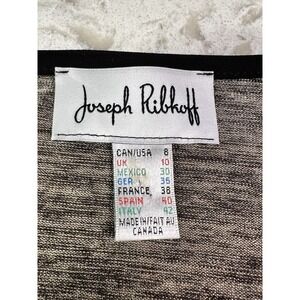 Joseph Ribkoff
CAN/USA 8
UK 10
MEXICO 30
GER 36
FRANCE 38
SPAIN 40
ITALY 42
MADE IN/FAIT AU
CANADA